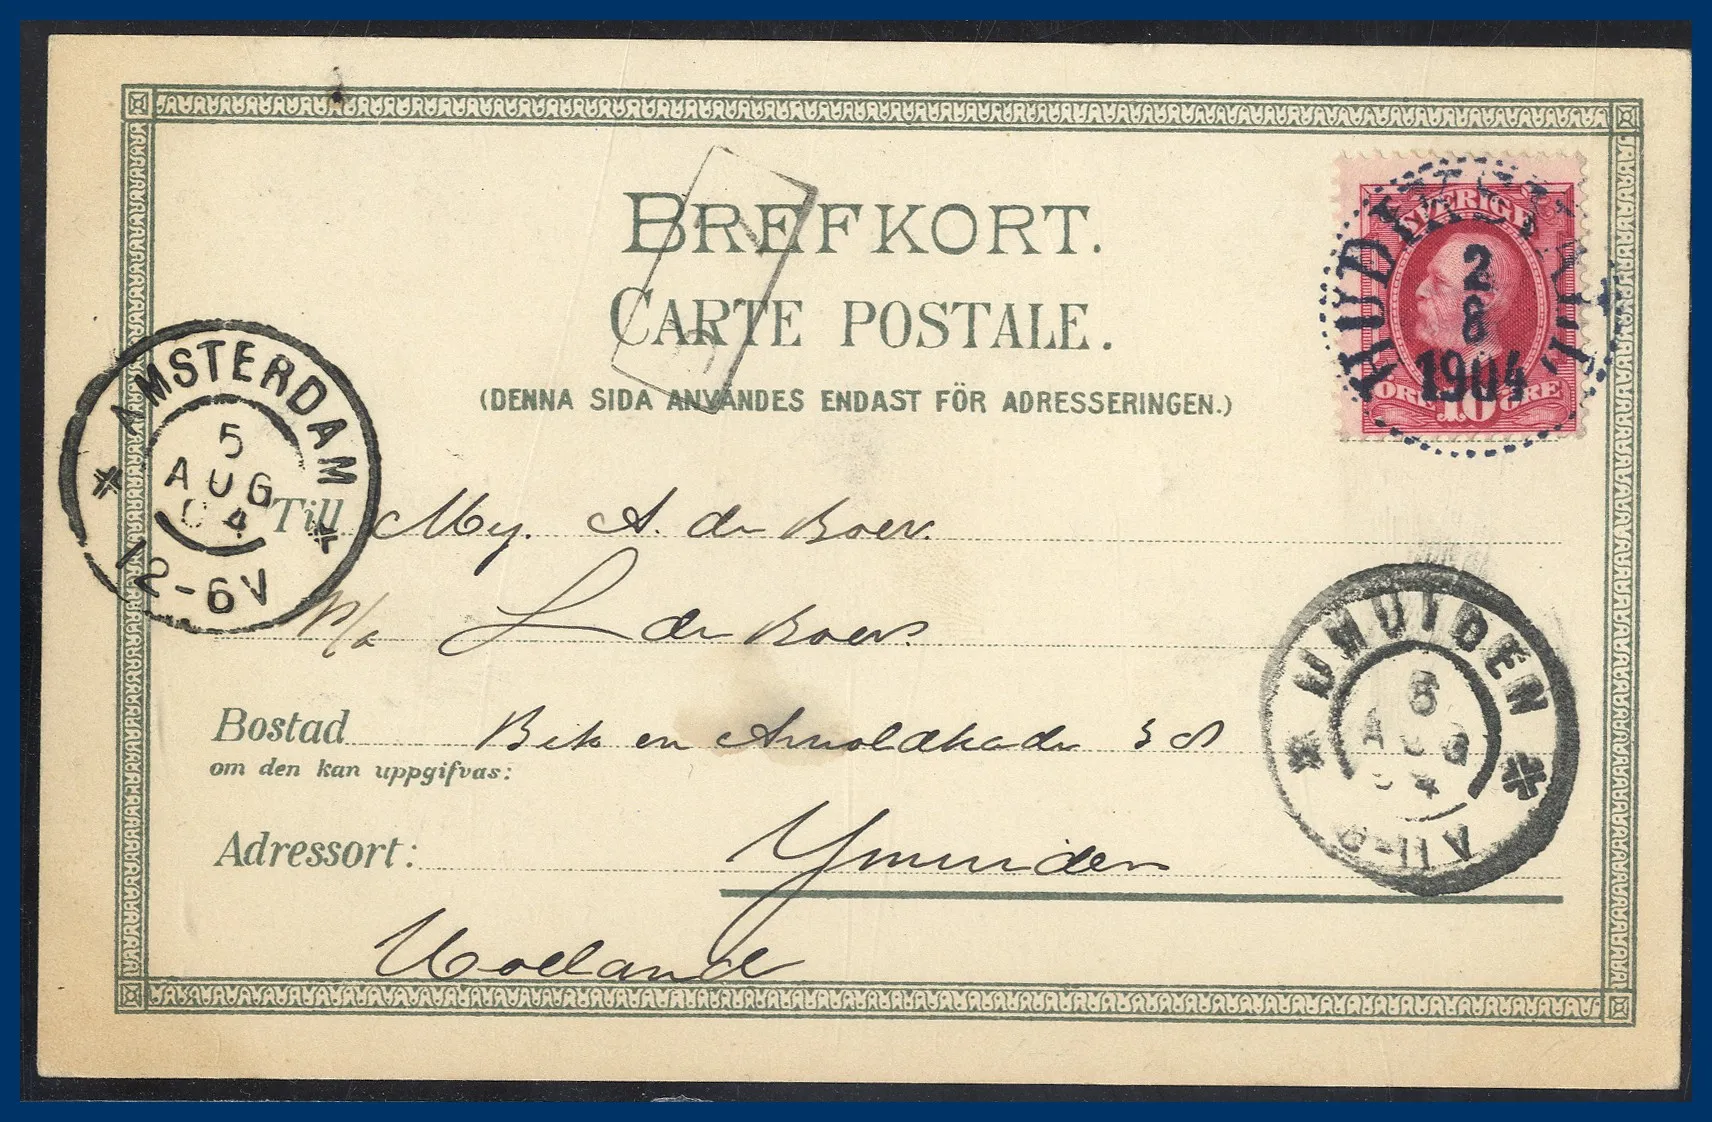 BREFKORT.
CARTE POSTALE.
(DENNA SIDA ANVÄNDES ENDAST FÖR ADRESSERINGEN.)
SVERIGE
HUDIKSVALL
2
8
1904
10
ÖRE ÖRE
AMSTERDAM
5
AUG
04
12-6V
Till Mej. A. de Boer.
p/a L de Boer.
IJMUIDEN
5
AUG
04
Bostad
om den kan uppgifvas:
Adressort: Ymuiden
Holland